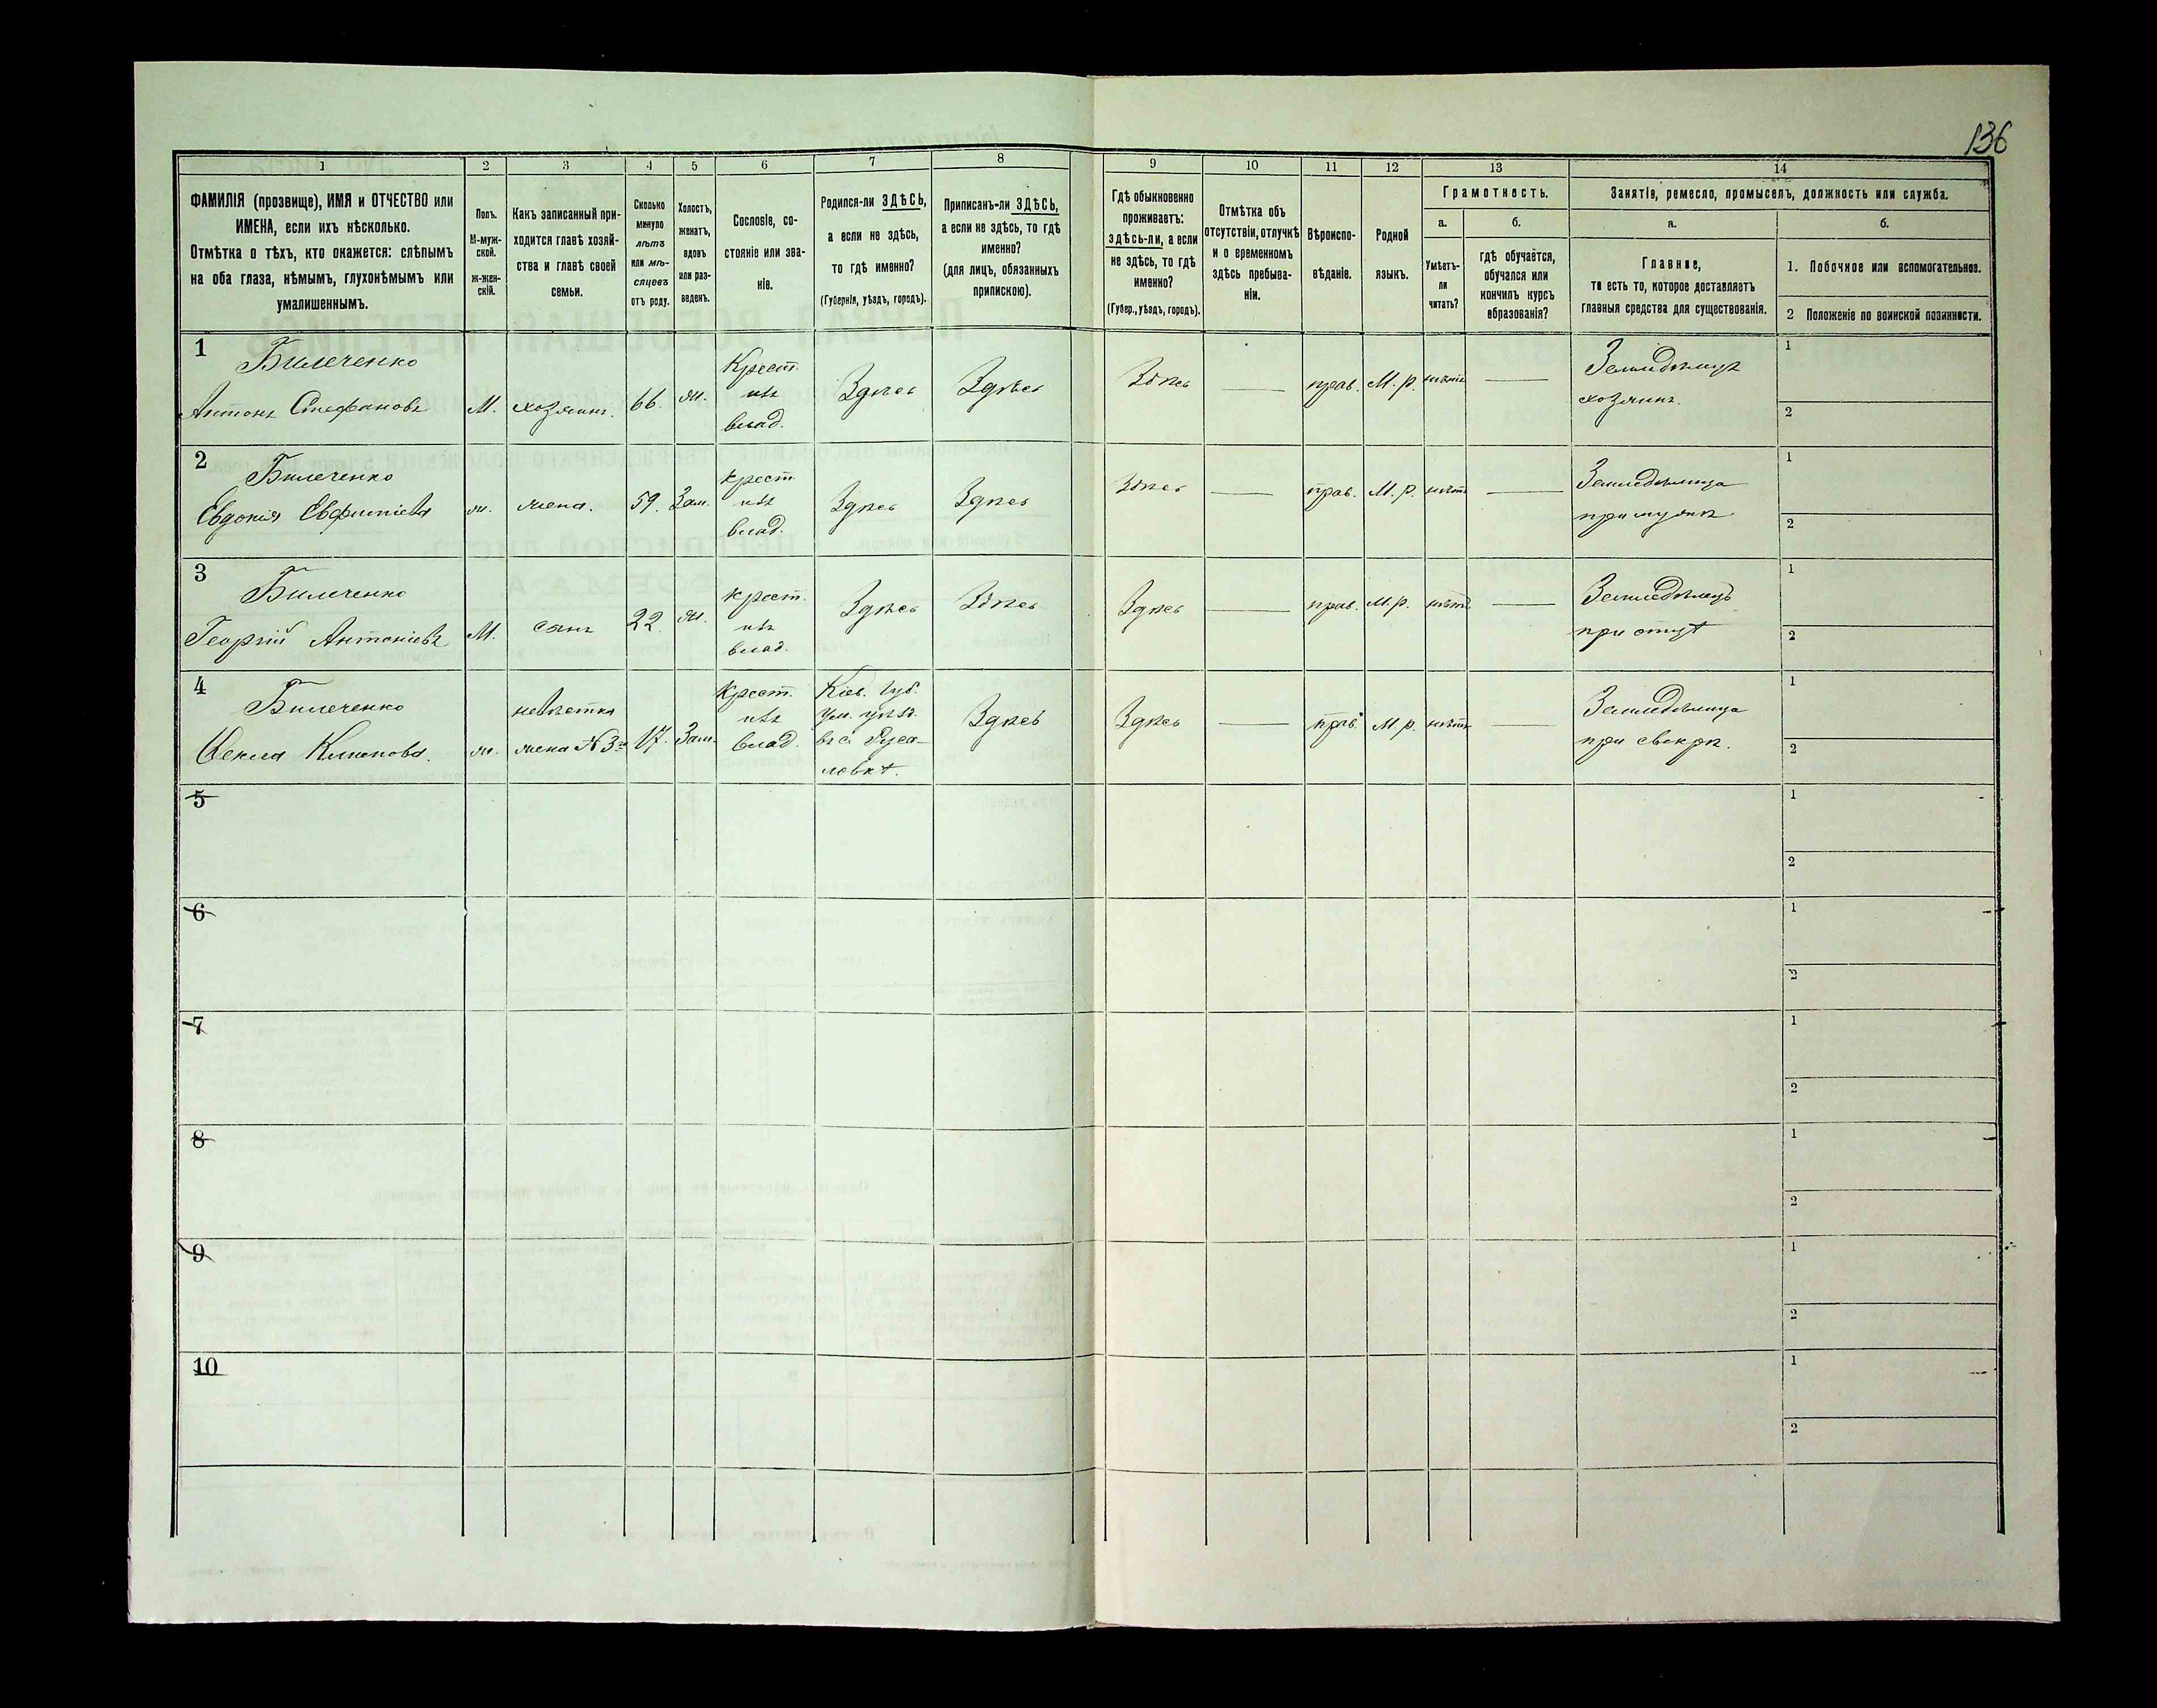 136
1
2
3
4
5
6
7
8
9
10
11
12
13
14
ФАМИЛІЯ (прозвище), ИМЯ и ОТЧЕСТВО или
ИМЕНА, если ихъ нѣсколько.
Отмѣтка о тѣхъ, кто окажется: слѣпымъ
на оба глаза, нѣмымъ, глухонѣмымъ или
умалишеннымъ.
Полъ.
М-муж-
ской.
ж-жен-
скій.
Какъ записанный при-
ходится главѣ хозяй-
ства и главѣ своей
семьи.
Сколько
минуло
лѣтъ
или мѣ-
сяцевъ
отъ роду.
Холостъ,
женатъ,
вдовъ
или раз-
веденъ.
Сословіе, со-
стояніе или зва-
ніе.
Родился-ли ЗДѢСЬ,
а если не здѣсь,
то гдѣ именно?
(Губернія, уѣздъ, городъ).
Приписанъ-ли ЗДѢСЬ,
а если не здѣсь, то гдѣ
именно?
(для лицъ, обязанныхъ
припискою).
Гдѣ обыкновенно
проживаетъ:
здѣсь-ли, а если
не здѣсь, то гдѣ
именно?
(Губер., уѣздъ, городъ).
Отмѣтка объ
отсутствіи, отлучкѣ
и о временномъ
здѣсь пребыва-
ніи.
Вѣроиспо-
вѣданіе.
Родной
языкъ.
Грамотность.
а.
Умѣетъ-
ли
читать?
б.
гдѣ обучается,
обучался или
кончилъ курсъ
образованія?
Занятіе, ремесло, промыселъ, должность или служба.
а.
Главное,
то есть то, которое доставляетъ
главныя средства для существованія.
б.
1. Побочное или вспомогательное.
2 Положеніе по воинской повинности.
1
Билеченко
Антонъ Стефановъ
М.
хозяинъ.
66.
ж.
Крест.
изъ
влад.
Здѣсь
Здѣсь
Здѣсь
прав.
М. р.
нѣтъ
Земледѣлецъ
хозяинъ.
1
2
2
Билеченко
Евдокія Евфиміева
ж.
жена.
59.
Зам.
крест.
изъ
влад.
Здѣсь
Здѣсь
Здѣсь
прав.
М. р.
нѣтъ
Земледѣлица
при мужѣ.
1
2
3
Билеченко
Георгій Антоніевъ
М.
сынъ
22.
ж.
крест.
изъ
влад.
Здѣсь
Здѣсь
Здѣсь
прав.
М. р.
нѣтъ
Земледѣлецъ
при отцѣ
1
2
4
Билеченко
Текла Климова.
ж.
невѣстка
жена № 3го
17.
Зам.
Крест.
изъ
влад.
Кіев. Губ.
Ум. уѣзд.
въ с. Руса-
ловкѣ.
Здѣсь
Здѣсь
прав.
М. р.
нѣтъ
Земледѣлица
при свекрѣ.
1
2
5
1
2
6
1
2
7
1
2
8
1
2
9
1
2
10
1
2